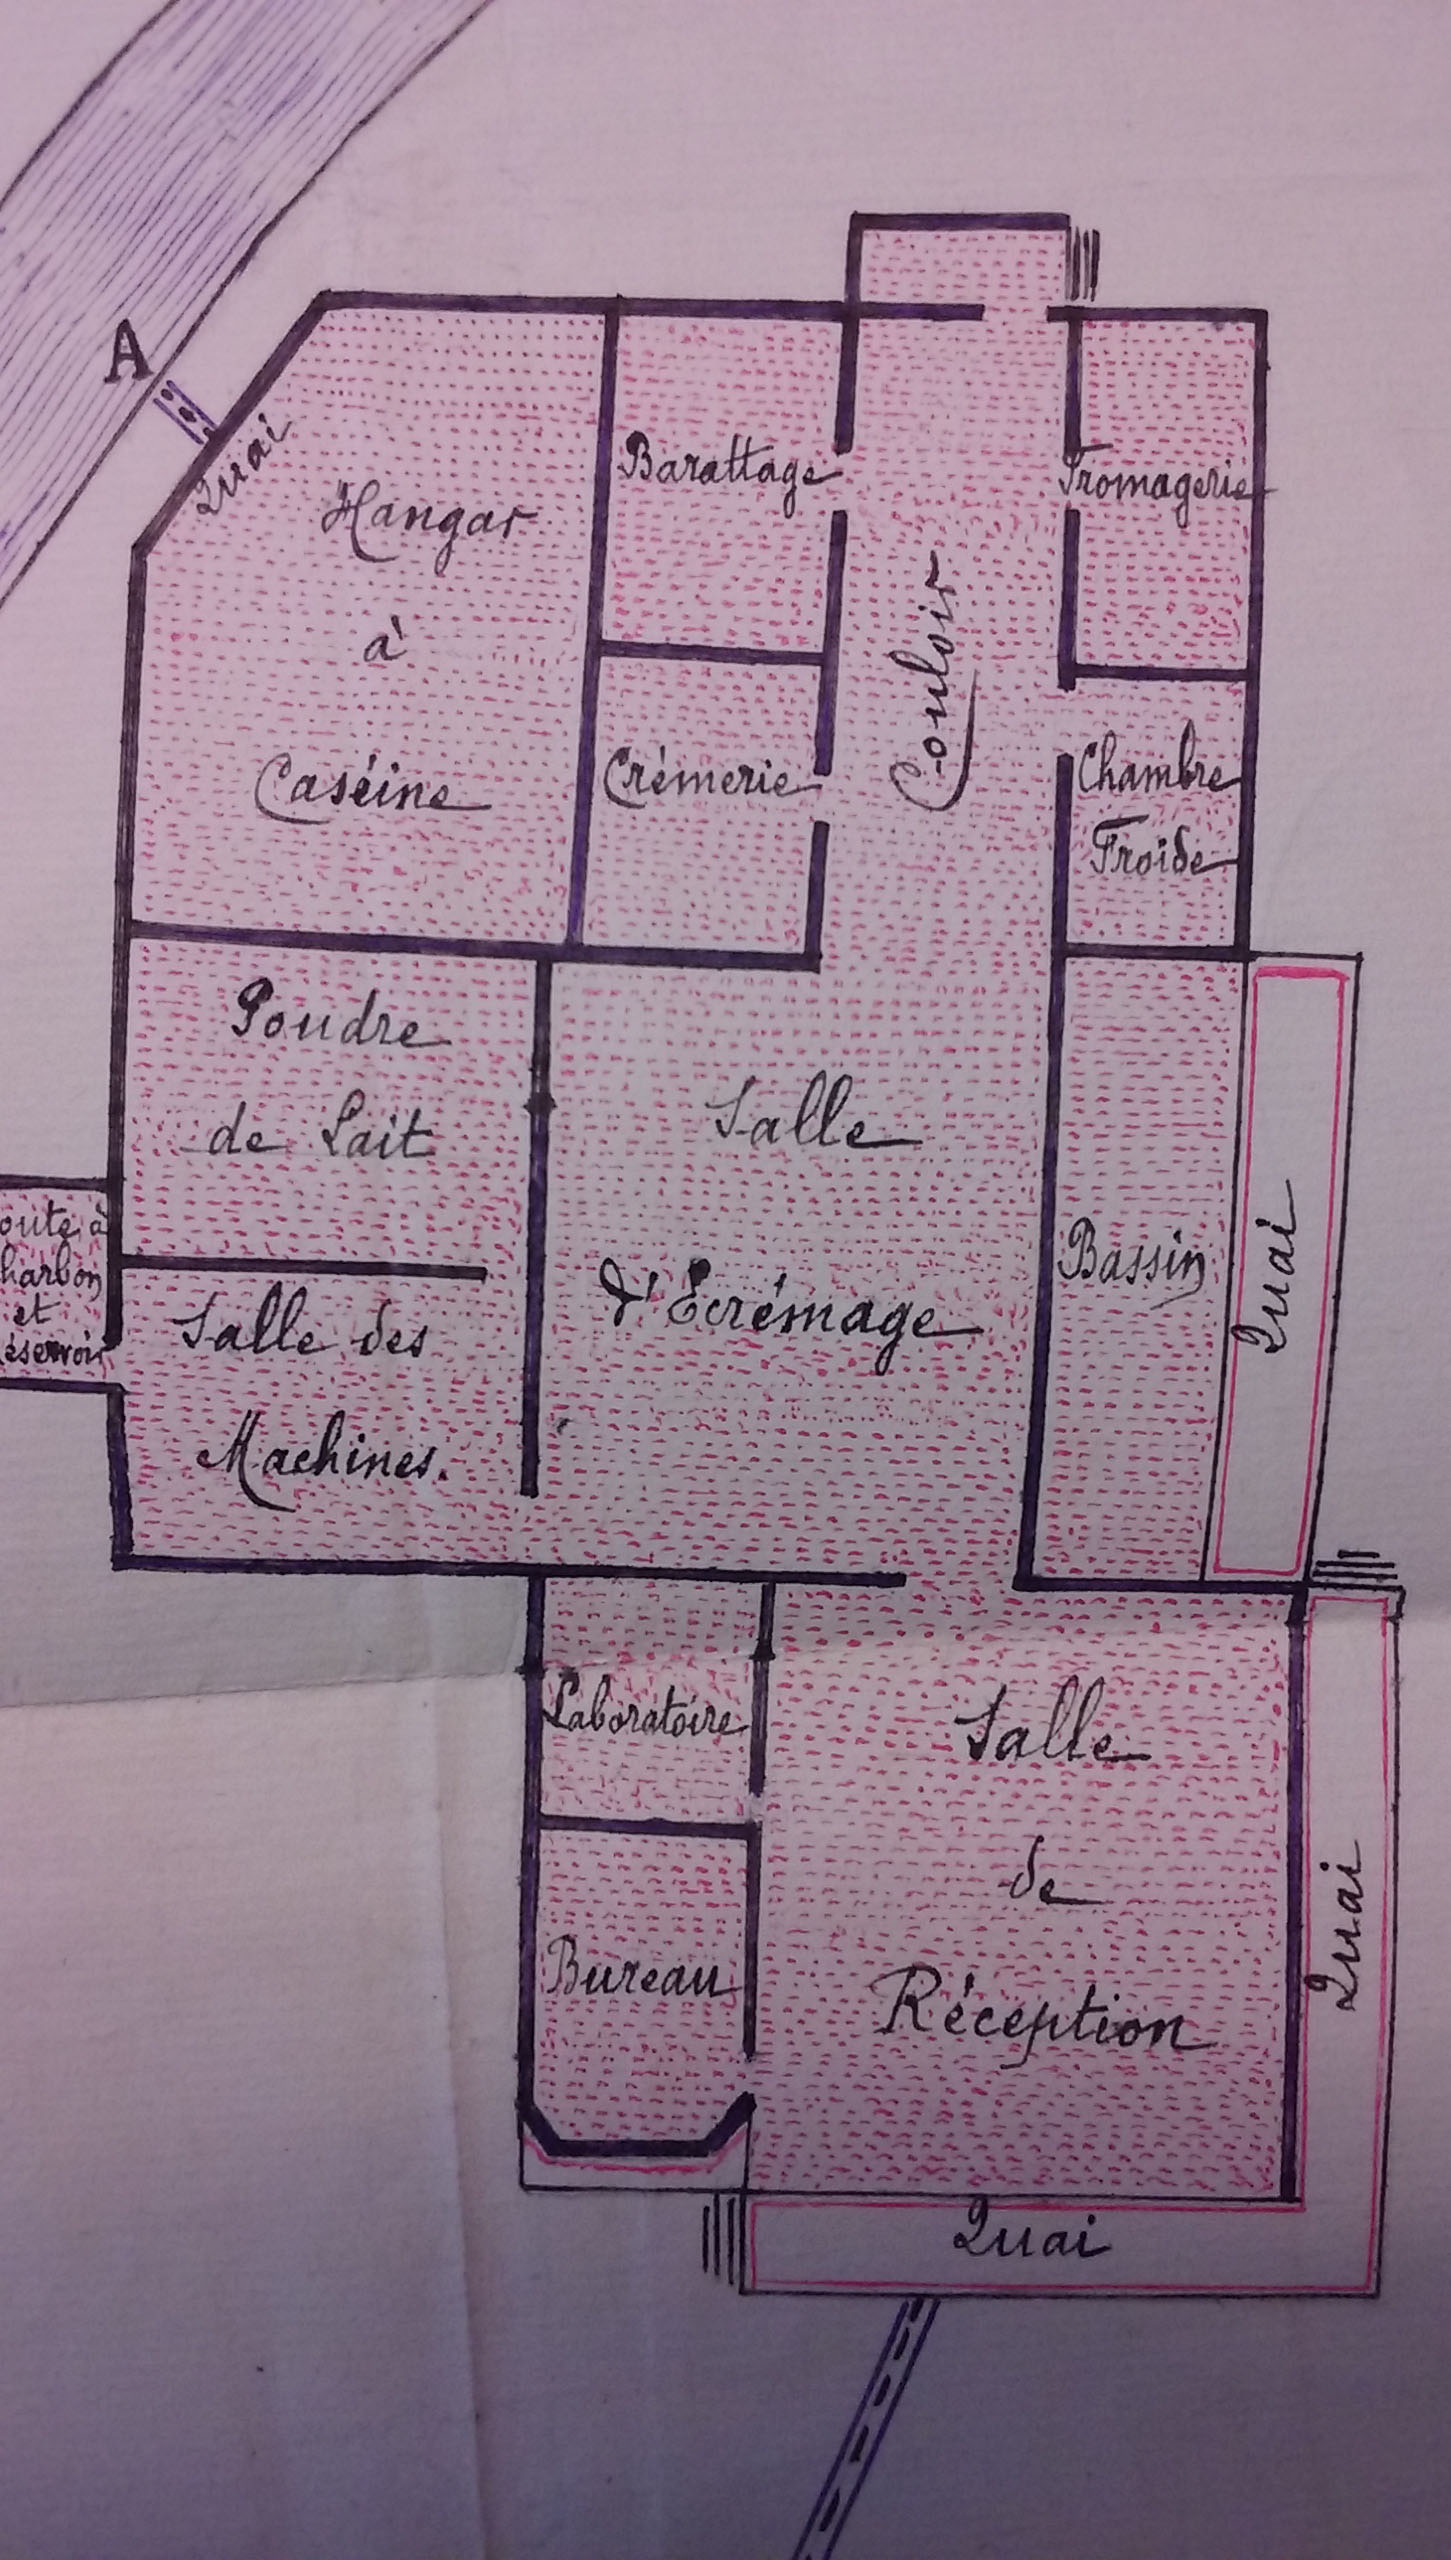 A
Quai
Hangar
à
Caséine
Barattage
Fromagerie
Couloir
Crèmerie
Chambre
Froide
Poudre
de Lait
Salle
d'Ecrémage
Bassin
Quai
oute à
harbon
et
éservoir
Salle des
Machines.
Laboratoire
Salle
de
Réception
Bureau
Quai
Quai